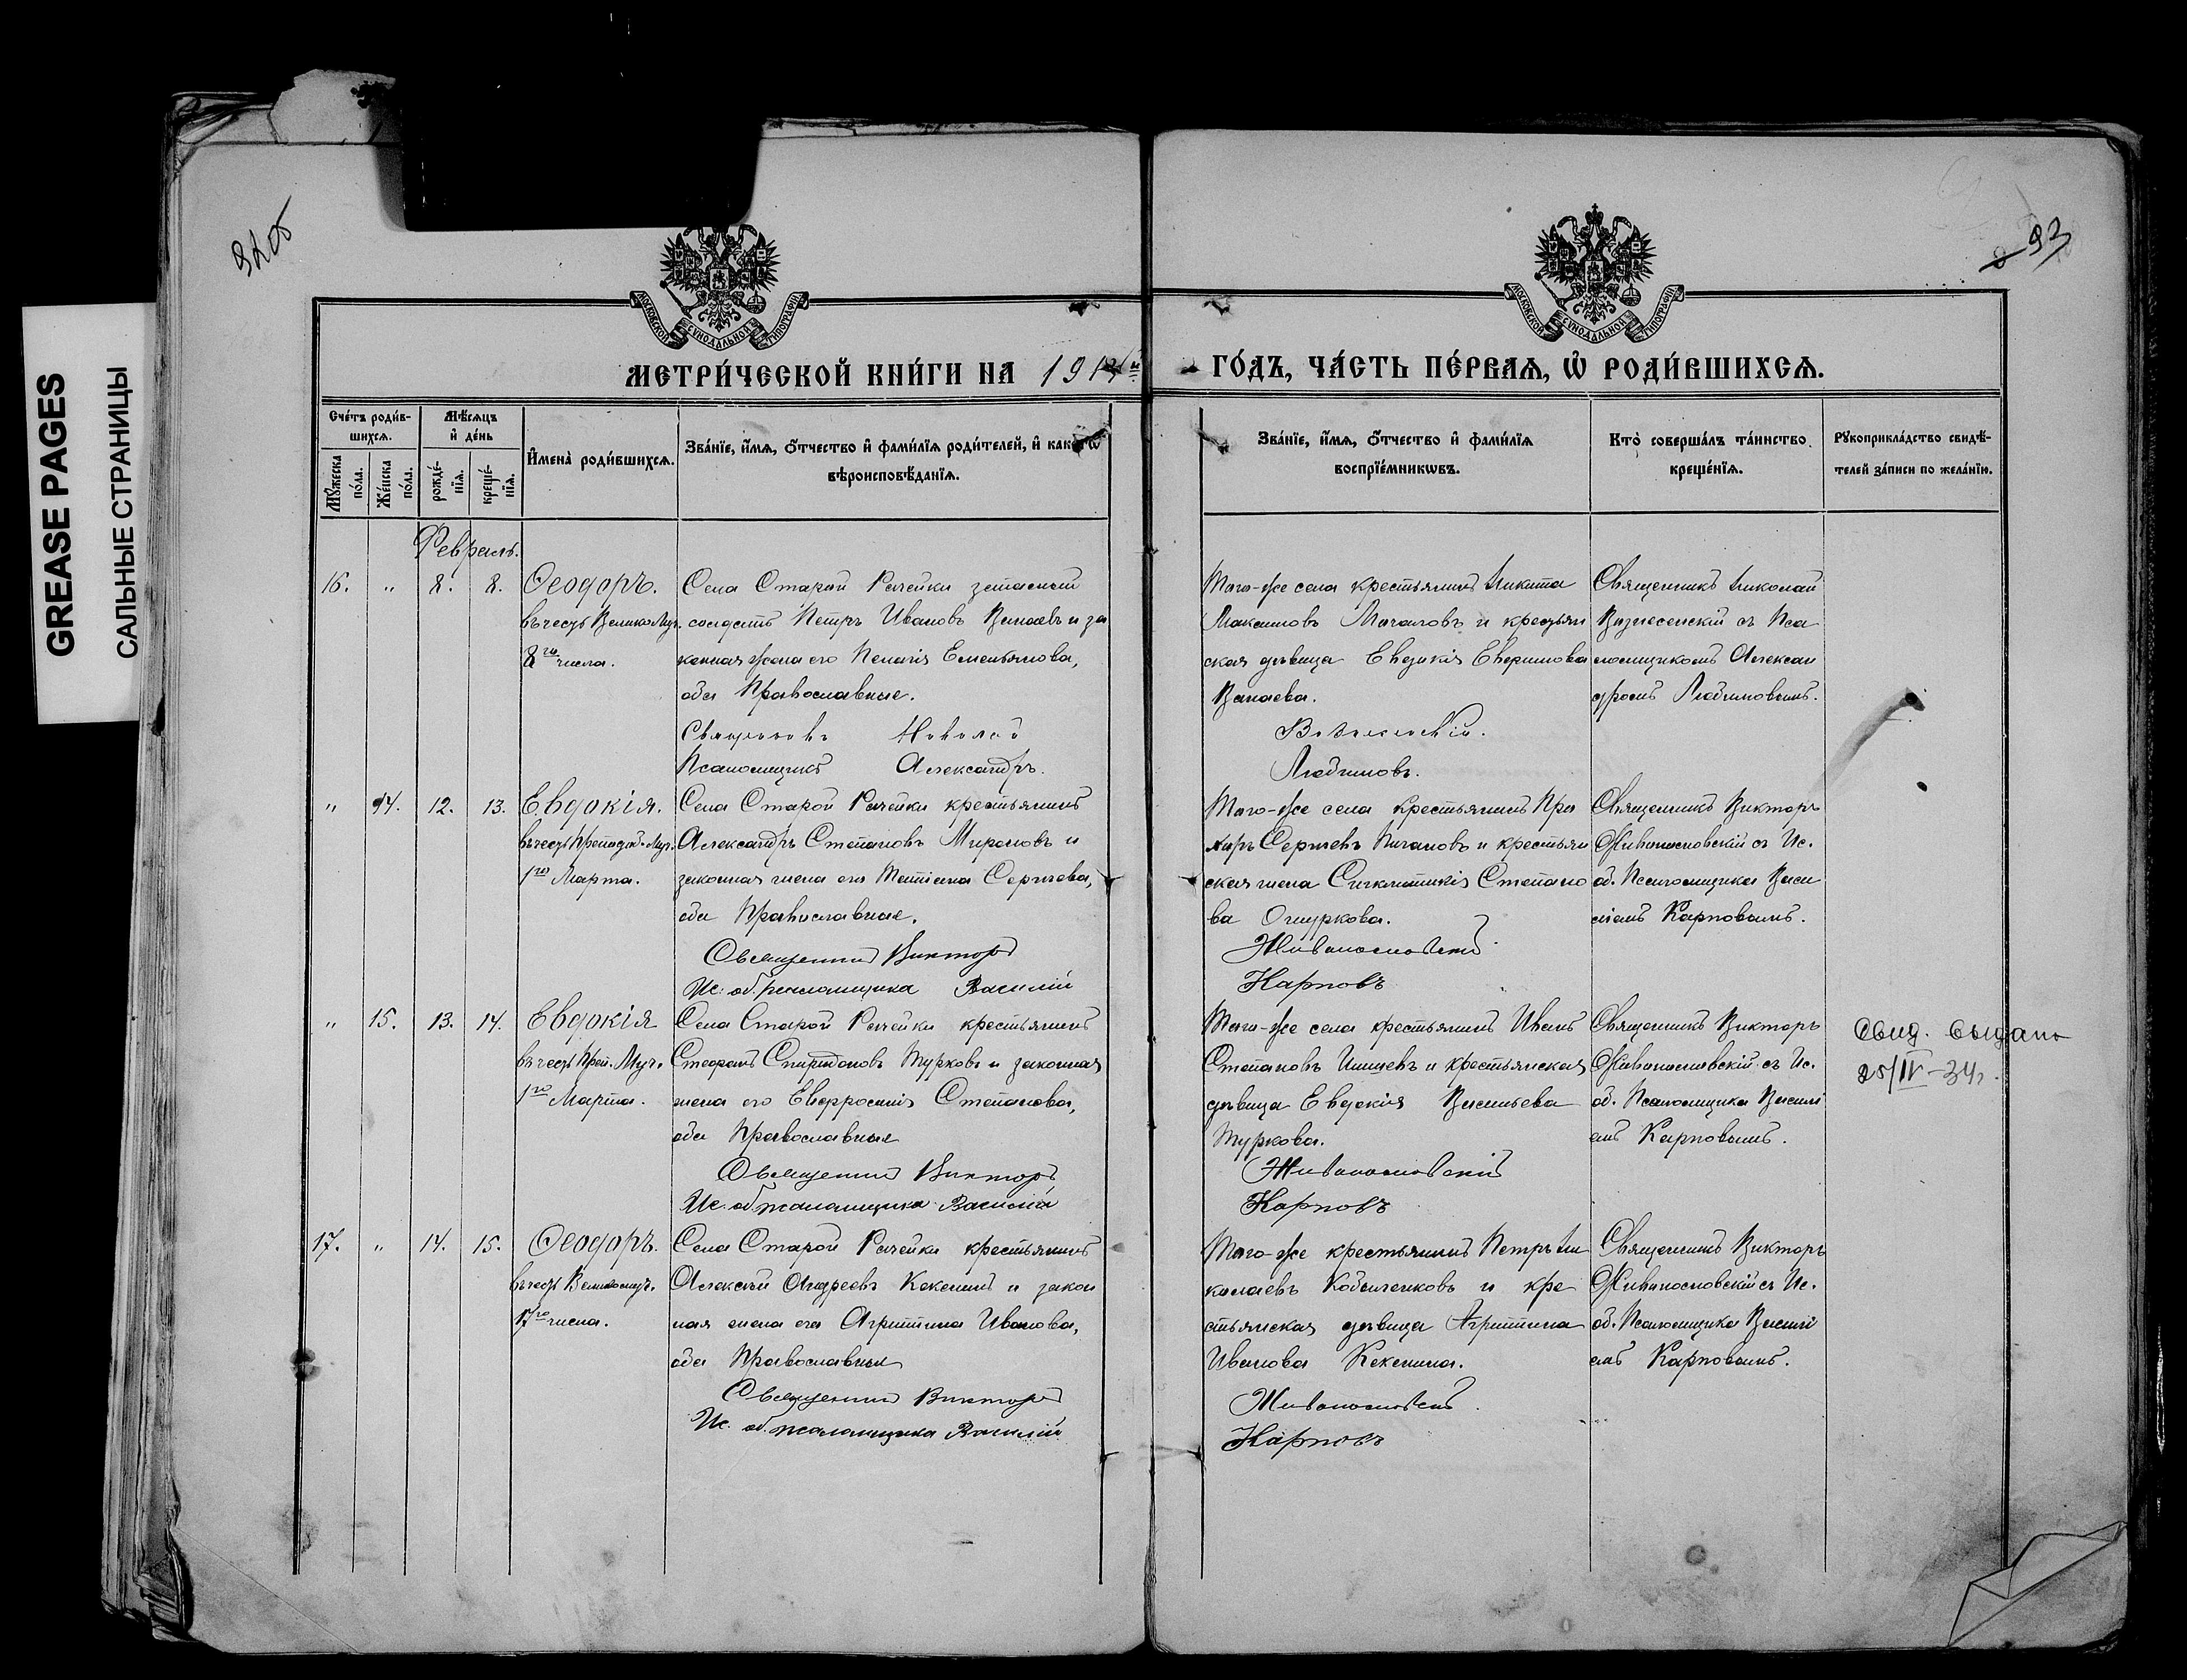 GREASE PAGES
САЛЬНЫЕ СТРАНИЦЫ
92об
93
МОСКОВСКОЙ СУНОДАЛЬНОЙ ТИПОГРАФІИ
МОСКОВСКОЙ СУНОДАЛЬНОЙ ТИПОГРАФІИ
МЕТРИ́ЧЕСКОЙ КНИ́ГИ НА 191
ГО́ДЪ, ЧА́СТЬ ПЕ́РВАѦ, Ѡ҆ РОДИ́ВШИХСѦ.
Сче́тъ роди́в-
шихсѧ.
Мѣ́сѧцъ
и҆ де́нь
Мꙋ́жеска по́ла.
Же́нска по́ла.
рожде́-
нїѧ.
креще́-
нїѧ.
И҆мена̀ роди́вшихсѧ.
Зва́нїе, и҆́мѧ, ѻ҆́тчество и҆ фами́лїѧ роди́телей, и҆ како́гѡ
вѣроисповѣ́данїѧ.
Зва́нїе, и҆́мѧ, ѻ҆́тчество и҆ фами́лїѧ
воспрїе́мникѡвъ.
Кто̀ соверша́лъ та́инство
креще́нїѧ.
Рꙋкоприкла́дство свидѣ́-
телей за́писи по жела́нїю.
Февраль.
16. „ 8. 8. Ѳеодоръ.
въ честь Великомуч.
8го числа.
Села Старой Рачейки запасный
солдатъ Петръ Ивановъ Ванаевъ и за
конная жена его Пелагія Емельянова,
оба Православные.
Священникъ Николай
Псаломщикъ Александръ.
Того-же села крестьянинъ Никита
Максимовъ и крестьян
ская дѣвица Евдокія
Ванаева.
Вознесенскій.
Любимовъ.
Священникъ Николай
Вознесенскій съ Пса
ломщикомъ Алексан
дромъ Любимовымъ.
„ 14. 12. 13. Евдокія.
въ честь Преподоб. Муч.
1го Марта.
Села Старой Рачейки крестьянинъ
Александръ Степановъ Мироновъ и
законная жена его Татіана Сергѣева,
оба Православные.
Священникъ Викторъ
Ис. об. псаломщика Василій
Того-же села крестьянинъ Про
хоръ Сергѣевъ и крестьян
ская жена Синклитикія Степано
ва Ошуркова.
Живоносновскій
Карповъ
Священникъ Викторъ
Живоносновскій съ Ис.
об. Псаломщика Васи
ліемъ Карповымъ.
„ 15. 13. 14. Евдокія
въ честь Преп. Муч.
1го Марта.
Села Старой Рачейки крестьянинъ
Стефанъ Спиридоновъ Турковъ и законная
жена его Евфросинія Степанова,
оба Православные
Священникъ Викторъ
Ис. об. псаломщика Василій
Того-же села крестьянинъ Иванъ
Степановъ и крестьянская
дѣвица Евдокія Васильева
Туркова.
Живоносновскій
Карповъ
Священникъ Викторъ
Живоносновскій съ Ис.
об. Псаломщика Васілі
емъ Карповымъ.
Свид. выдано
25/IV-34г.
17. „ 14. 15. Ѳеодоръ.
въ честь Великомуч.
17го числа.
Села Старой Рачейки крестьянинъ
Алексѣй Андреевъ Кекешинъ и закон
ная жена его Агриппина Иванова,
оба Православные
Священникъ Викторъ
Ис. об. псаломщика Василій
Того-же крестьянинъ Петръ Ни
колаевъ и кре
стьянская дѣвица Агриппина
Иванова Кекешина.
Живоносновскій
Карповъ
Священникъ Викторъ
Живоносновскій съ Ис.
об. Псаломщика Васілі
емъ Карповымъ.